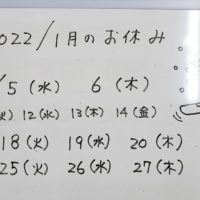 022/1月のお休み
/5(水) 6(木)
火) 12(水) 13(木) 14(金)
18(火) 19(水) 20(木)
25(火) 26(水) 27(木)